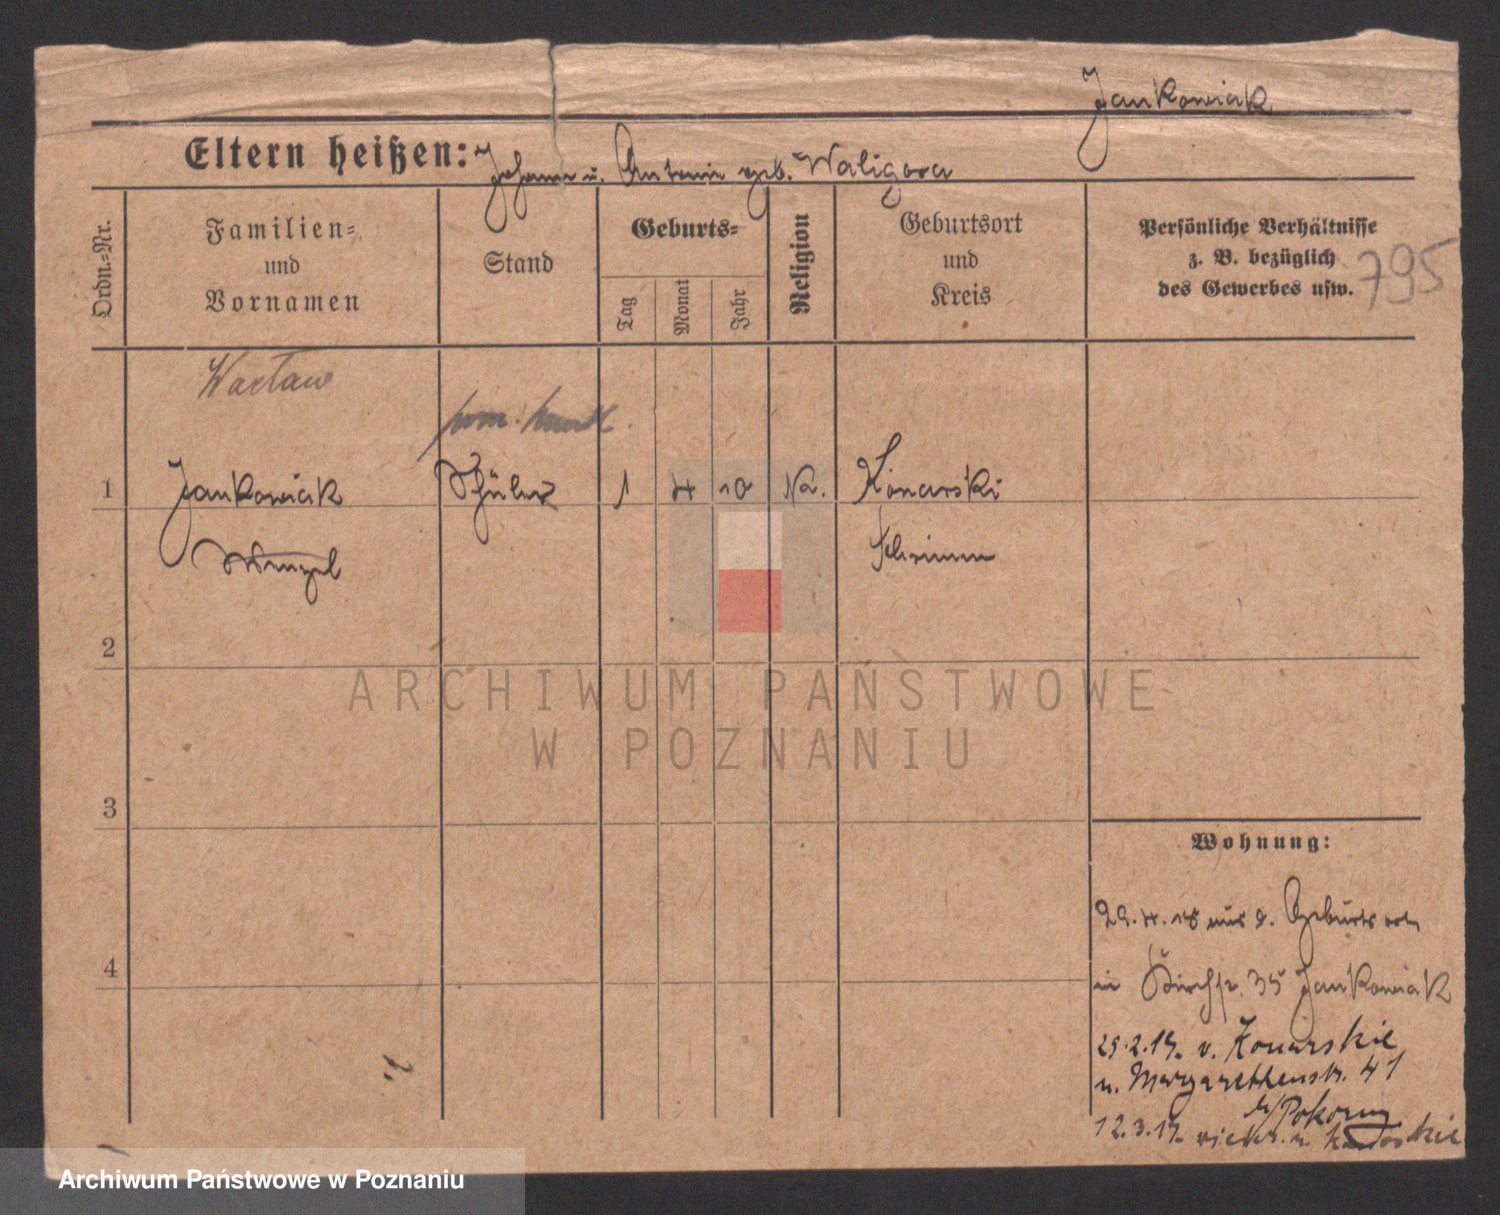 Jankowiak
Eltern heißen: Johann u. Antonie geb. Waligora
Ordn.-Nr.
Familien-
und
Vornamen
Stand
Geburts-
Tag
Monat
Jahr
Religion
Geburtsort
und
Kreis
Persönliche Verhältnisse
z. B. bezüglich
des Gewerbes usw.
795
Wacław
1 Jankowiak Schüler 1 4 10 Ka. Konarski
Wenzel Schrimm
2
3
4
Wohnung:
29.4.18 aus d. Geburtsort
in 35 Jankowiak
25.2.19. v. Konarskie
n. Margarethenstr. 41
b/Pokorny
12.3.19. n.
ARCHIWUM PAŃSTWOWE
W POZNANIU
Archiwum Państwowe w Poznaniu